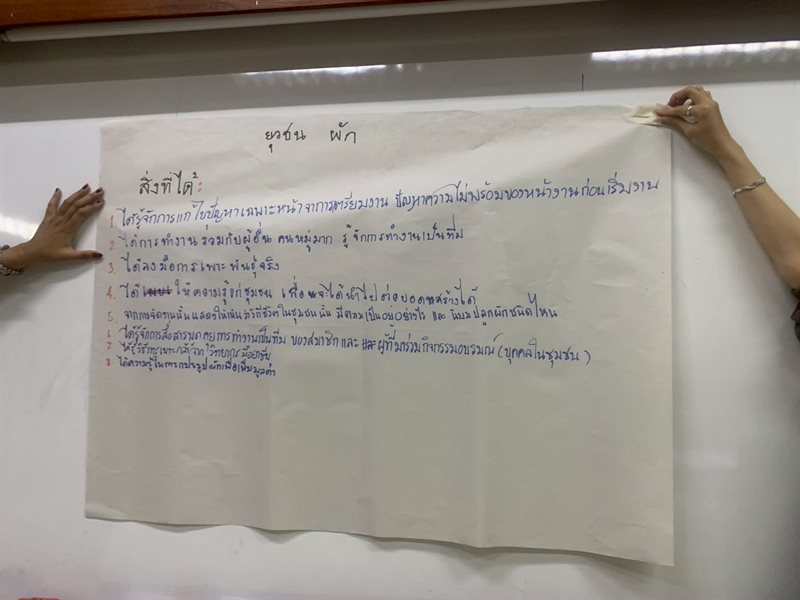 ยุวชน ผัก
สิ่งที่ได้ :
1. ได้รู้จักการแก้ไขปัญหาเฉพาะหน้าจากการเตรียมงาน ปัญหาความไม่พร้อมของหน้างานก่อนเริ่มงาน
2. ได้การทำงานร่วมกับผู้อื่น คนหมู่มาก รู้จักการทำงานเป็นทีม
3. ได้ลงมือการเพาะพันธุ์จริง
4. ได้ ให้ความรู้แก่ชุมชน เพื่อจะได้นำไปต่อยอดสร้างได้
5. จากการจัดงานนั้นแสดงให้เห็นว่าวิถีชีวิตในชุมชนนั้น มีความเป็นอยู่อย่างไร และ นิยมปลูกผักชนิดไหน
6. ได้รู้จักการสื่อสารพูดคุยการทำงานเป็นทีม ของสมาชิกและ ผู้ที่มาร่วมกิจกรรมอบรมณ์ (บุคคลในชุมชน)
7. ได้รู้วิธีการเพาะกล้าจาก วิทยากรมืออาชีพ
8. ได้ความรู้ในการแปรรูปผักเพื่อเพิ่มมูลค่า